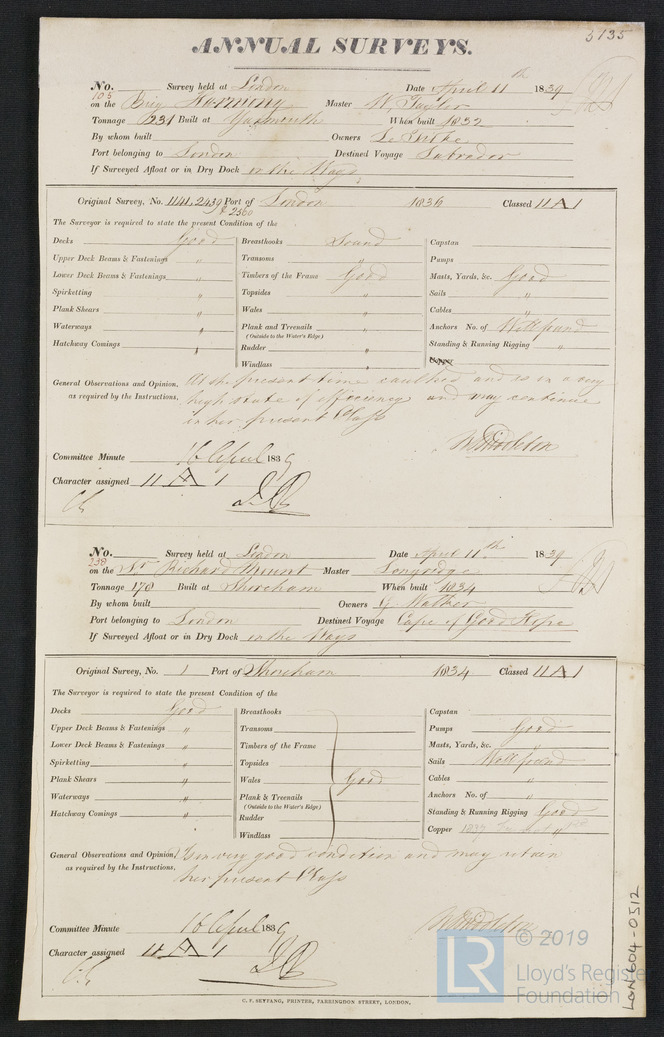 5135
ANNUAL SURVEYS.
No. Survey held at London Date April 11th 1839
105
on the Brig Harmony Master W. Taylor
Tonnage 231 Built at Yarmouth When built 1832
By whom built Owners
Port belonging to London Destined Voyage Labrador
If Surveyed Afloat or in Dry Dock on the Ways
Original Survey, No. 1141.2439 Port of London 1836 Classed 11 A 1
& 2560
The Surveyor is required to state the present Condition of the
Decks Good Breasthooks Sound Capstan
Upper Deck Beams & Fastenings " Transoms " Pumps
Lower Deck Beams & Fastenings " Timbers of the Frame Good Masts, Yards, &c. Good
Spirketting " Topsides " Sails "
Plank Shears " Wales " Cables "
Waterways " Plank and Treenails " Anchors No. of Well found
(Outside to the Water's Edge)
Hatchway Comings " Rudder " Standing & Running Rigging "
Windlass " Copper
General Observations and Opinion, At the present time caulked and is in a very
as required by the Instructions, high state of efficiency and may continue
in her present Class
W Middleton
Committee Minute 16 April 1839
Character assigned 11 A 1
No. Survey held at London Date April 11th 1839
238
on the Richard Mount Master Longridge
Tonnage 170 Built at Shoreham When built 1834
By whom built Owners G. Mather
Port belonging to London Destined Voyage Cape of Good Hope
If Surveyed Afloat or in Dry Dock on the Ways
Original Survey, No. 1 Port of Shoreham 1834 Classed 11 A 1
The Surveyor is required to state the present Condition of the
Decks Good Breasthooks Capstan
Upper Deck Beams & Fastenings " Transoms Pumps Good
Lower Deck Beams & Fastenings " Timbers of the Frame Masts, Yards, &c. "
Spirketting " Topsides Sails Well found
Plank Shears " Wales Good Cables "
Waterways " Plank & Treenails Anchors No. of "
(Outside to the Water's Edge)
Hatchway Comings " Rudder Standing & Running Rigging Good
Windlass Copper 1837
General Observations and Opinion, Is in very good condition and may retain
as required by the Instructions, her present Class
W Middleton
Committee Minute 16 April 1839
Character assigned 11 A 1
C. F. SEYFANG, PRINTER, FARRINGDON STREET, LONDON.
LON 604-0312
LR © 2019
Lloyd's Register
Foundation